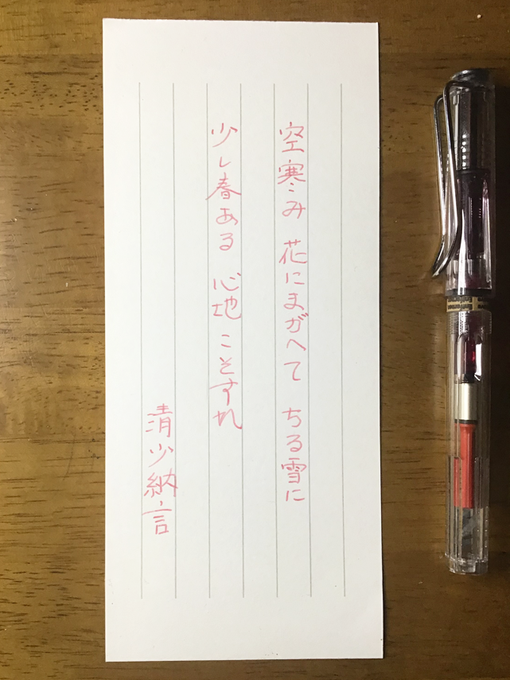 空寒み 花にまがへて ちる雪に
少し春ある 心地こそすれ
清少納言